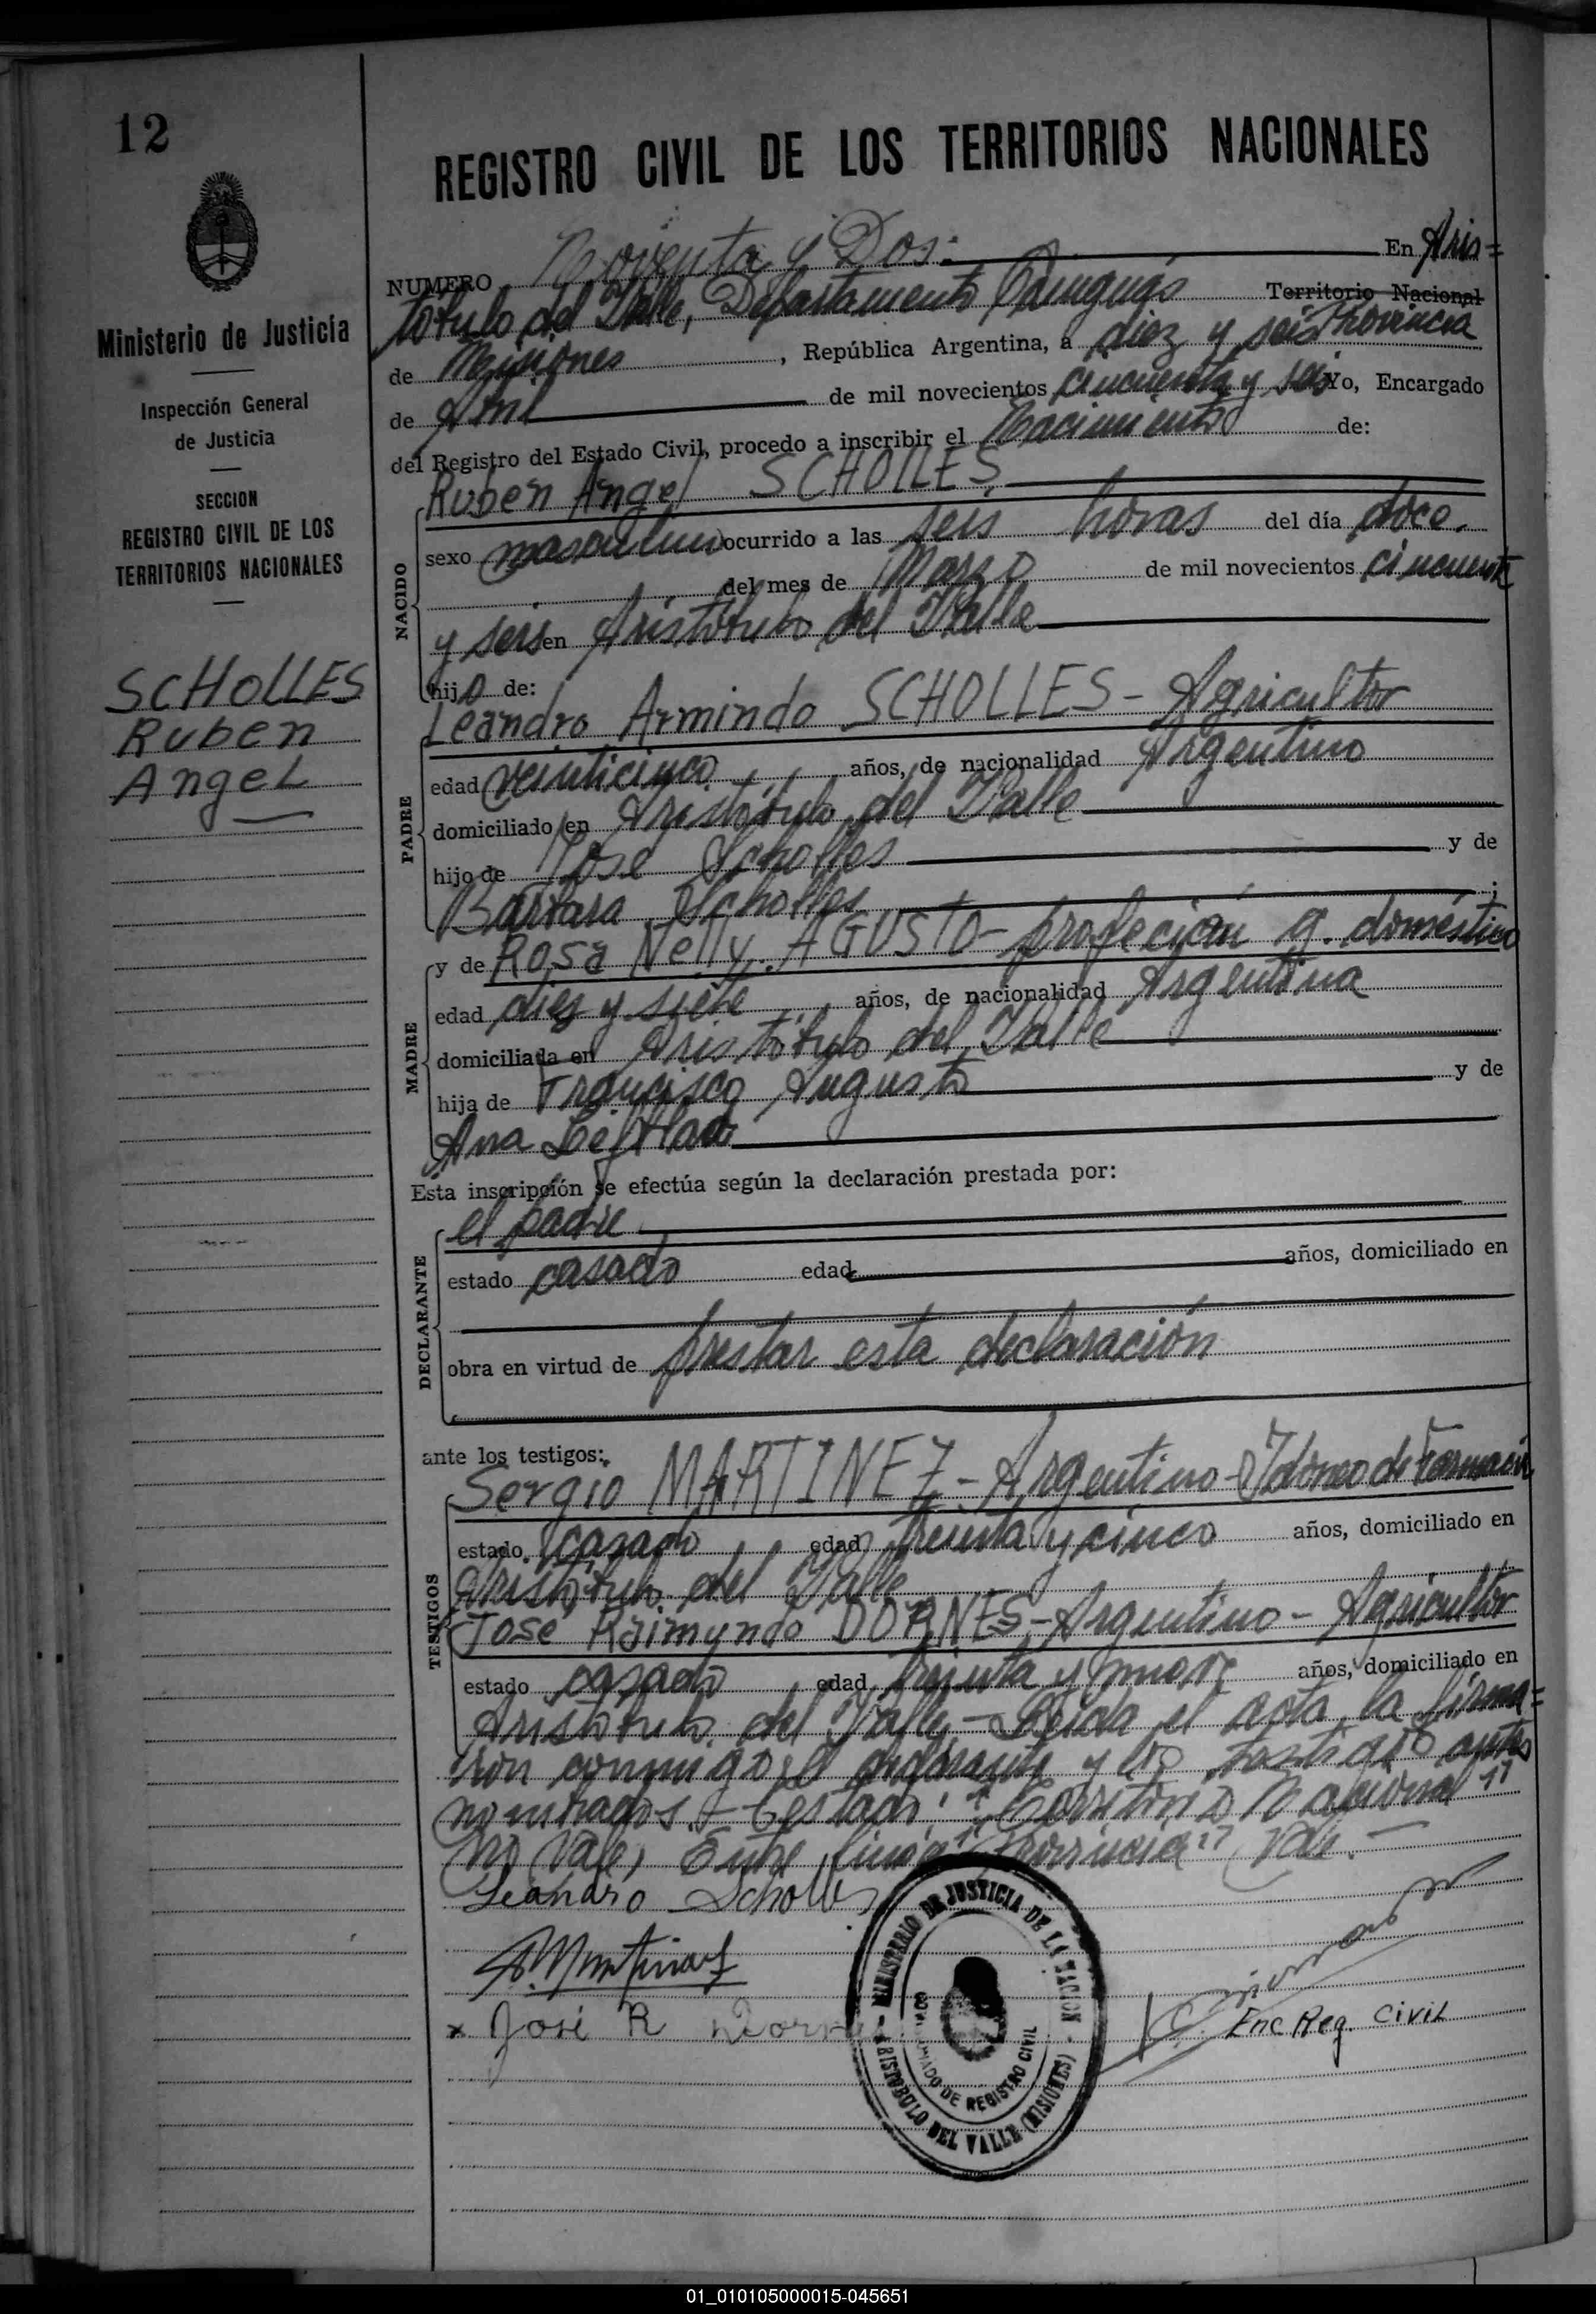 12
REGISTRO CIVIL DE LOS TERRITORIOS NACIONALES
Ministerio de Justicia
Inspección General
de Justicia
SECCION
REGISTRO CIVIL DE LOS
TERRITORIOS NACIONALES
SCHOLLES
Ruben
Angel
NUMERO Noventa y Dos.- En Aris=
tóbulo del Valle, Departamento Cainguás Territorio Nacional
Provincia
de Misiones, República Argentina, a diez y seis
de Abril de mil novecientos cincuenta y seis Yo, Encargado
del Registro del Estado Civil, procedo a inscribir el Nacimiento de:
NACIDO
Ruben Angel SCHOLLES
sexo masculino ocurrido a las seis horas del día doce.
del mes de Marzo de mil novecientos cincuenta
y seis en Aristóbulo del Valle
hijo de:
PADRE
Leandro Armindo SCHOLLES - Agricultor
edad veinticinco años, de nacionalidad Argentino
domiciliado en Aristóbulo del Valle
hijo de José Scholles y de
Barbara Scholles;
MADRE
y de Rosa Nelly AGUSTO - profeción q. doméstico
edad diez y siete años, de nacionalidad Argentina
domiciliada en Aristóbulo del Valle
hija de Francisco Augusto y de
Ana
Esta inscripción se efectúa según la declaración prestada por:
DECLARANTE
el padre
estado casado edad años, domiciliado en
obra en virtud de prestar esta declaración
ante los testigos:
TESTIGOS
Sergio MARTINEZ - Argentino - Idoneo de Farmacia
estado casado edad treinta y cinco años, domiciliado en
Aristóbulo del Valle
José Raimundo DORNES - Argentino - Agricultor
estado casado edad treinta y nueve años, domiciliado en
Aristóbulo del Valle - Leida el acta, la firma=
ron conmigo el declarante y los testigos antes
nombrados - Testado: "Territorio Nacional"
No Vale, Entre lineas "Provincia" Vale. -
Leandro Scholles
S. Martinez
x José R Dorne
Enc Reg. Civil
MINISTERIO DE JUSTICIA DE LA NACION
ARISTOBULO DEL VALLE (MISIONES)
DE REGISTRO CIVIL
01_010105000015-045651